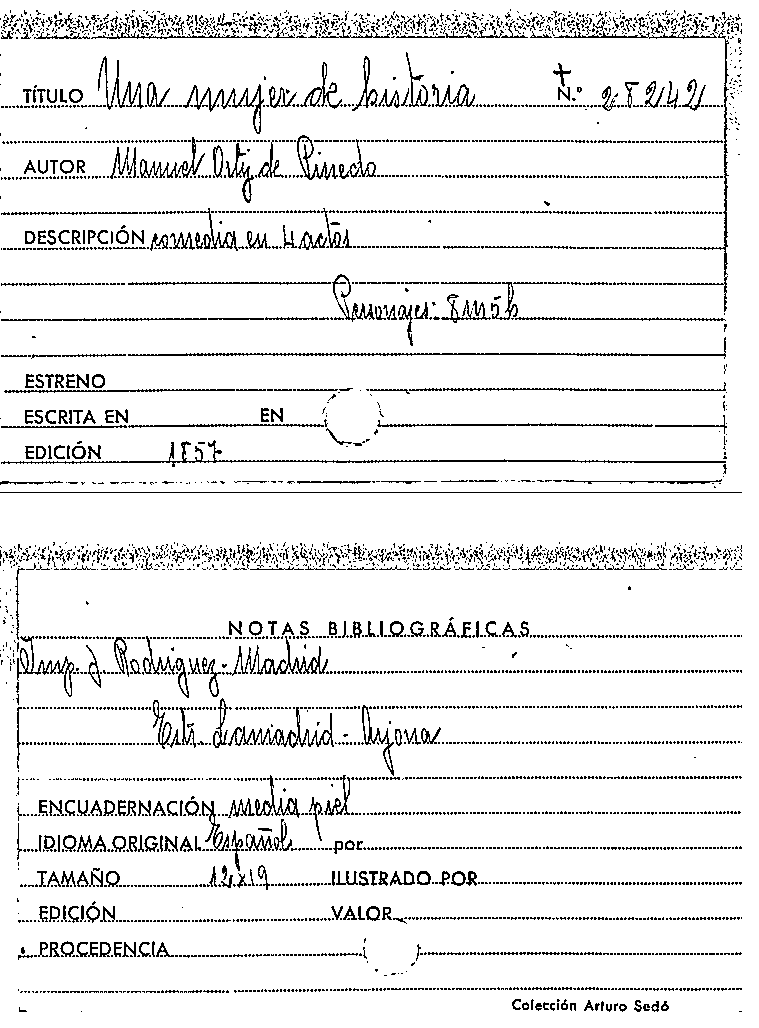 TÍTULO Una mujer de historia N.º 28242
AUTOR Manuel Ortiz de Pinedo
DESCRIPCIÓN comedia en 4 actos
Personajes: 8 m 5 h
ESTRENO
ESCRITA EN EN
EDICIÓN 1857
NOTAS BIBLIOGRÁFICAS
Imp. J. Rodriguez - Madrid
Estr. Lamadrid - Arjona
ENCUADERNACIÓN media piel
IDIOMA ORIGINAL Español por
TAMAÑO 12x19 ILUSTRADO POR
EDICIÓN VALOR
PROCEDENCIA
Colección Arturo Sedó